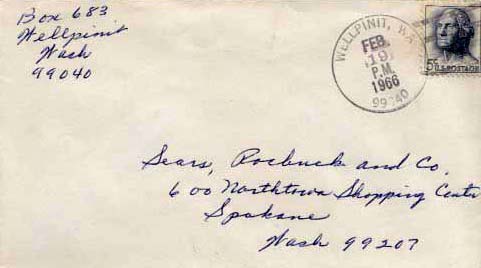 Box 683
Wellpinit
Wash
99040
WELLPINIT, WA
FEB
19
P.M.
1966
99040
5¢ U.S. POSTAGE
Sears, Roebuck and Co.
600 Northtown Shopping Center
Spokane
Wash 99207